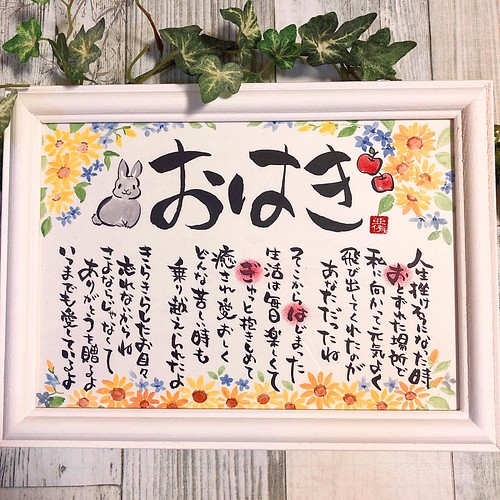 おはぎ
人生挫けそうになった時
おとずれた場所で
私に向かって元気よく
飛び出してくれたのが
あなただったね
そこからはじまった
生活は毎日楽しくて
ぎゅっと抱きしめて
癒され愛おしく
どんな苦しい時も
乗り越えられたよ
きらきらしたお目々
忘れないからね
さよならじゃなくて
ありがとうを贈るよ
いつまでも愛しているよ